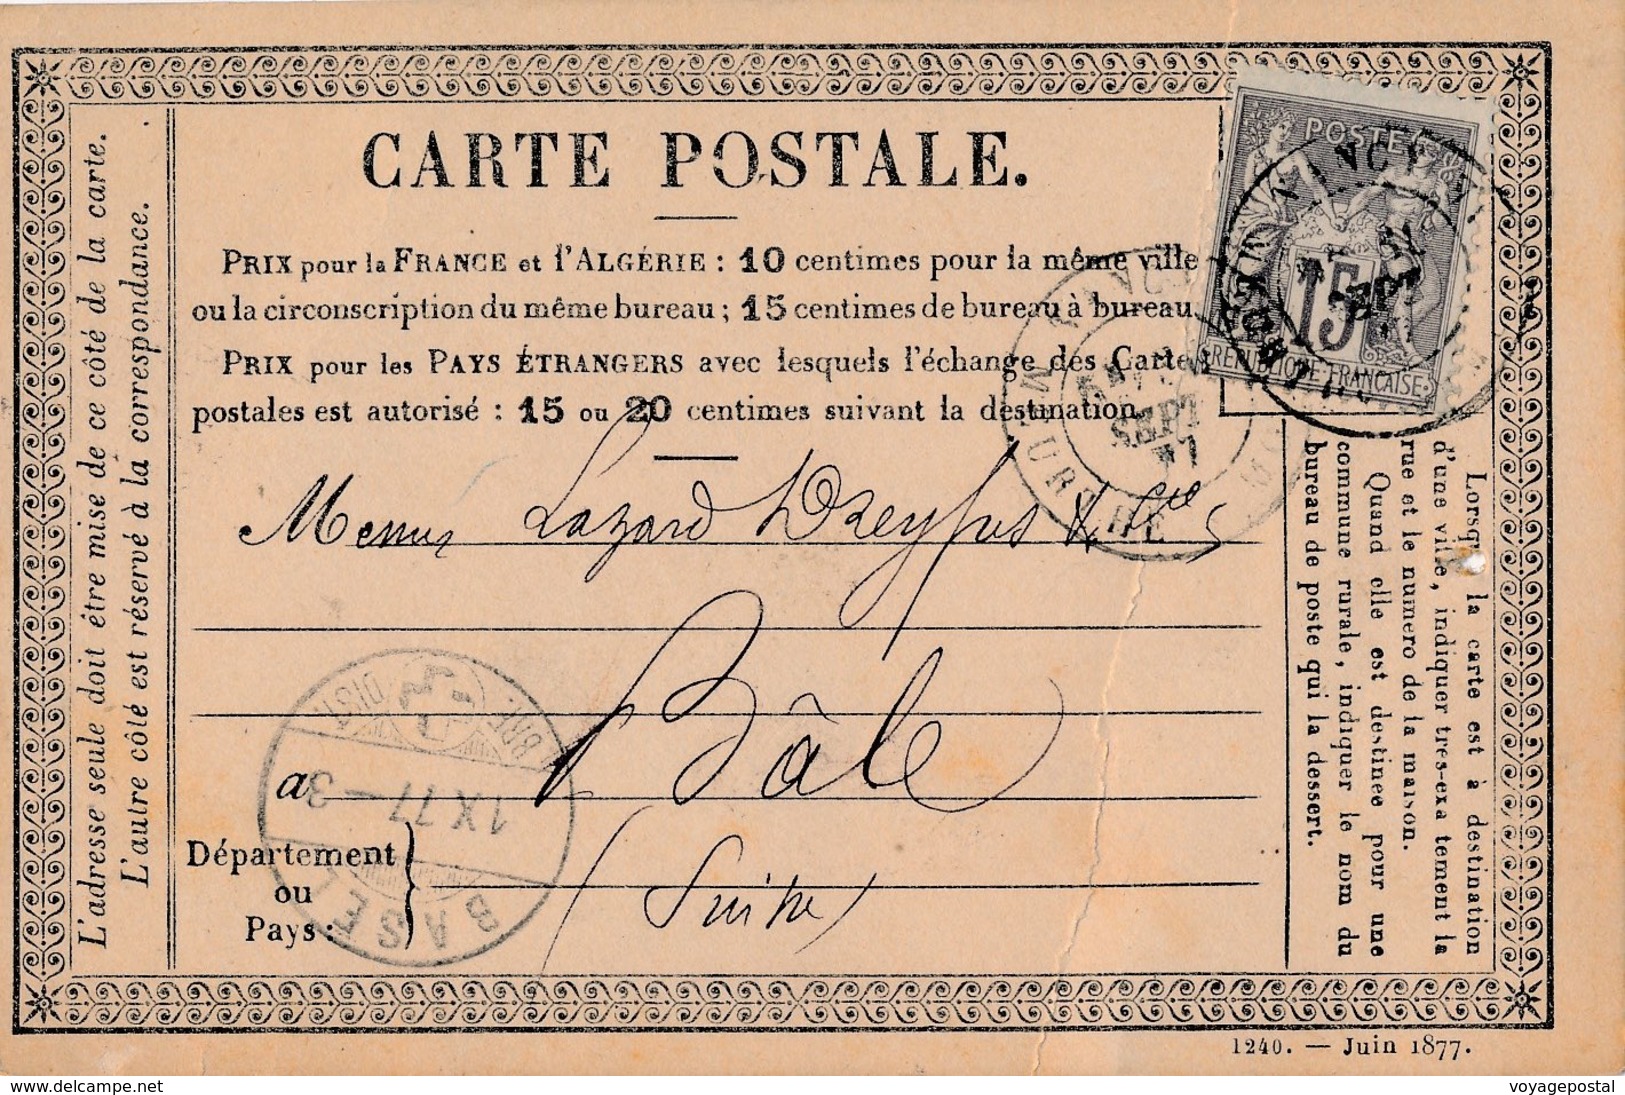 CARTE POSTALE.
PRIX pour la FRANCE et l'ALGÉRIE : 10 centimes pour la même ville
ou la circonscription du même bureau ; 15 centimes de bureau à bureau.
PRIX pour les PAYS ÉTRANGERS avec lesquels l'échange des Cartes
postales est autorisé : 15 ou 20 centimes suivant la destination.
Lazard Dreyfus & Cie
à Bâle
Département
ou
Pays :
(Suisse)
L'adresse seule doit être mise de ce côté de la carte.
L'autre côté est réservé à la correspondance.
Lorsque la carte est à destination
d'une ville, indiquer très-exactement la
rue et le numéro de la maison.
Quand elle est destinée pour une
commune rurale, indiquer le nom du
bureau de poste qui la dessert.
POSTES
15
REPUBLIQUE FRANÇAISE
NANCY
SEPT
77
NANCY
SEPT
77
BASEL
1 X 77 – 3
BRF. DIST
1240. — Juin 1877.
delcampe.net
voyagepostal